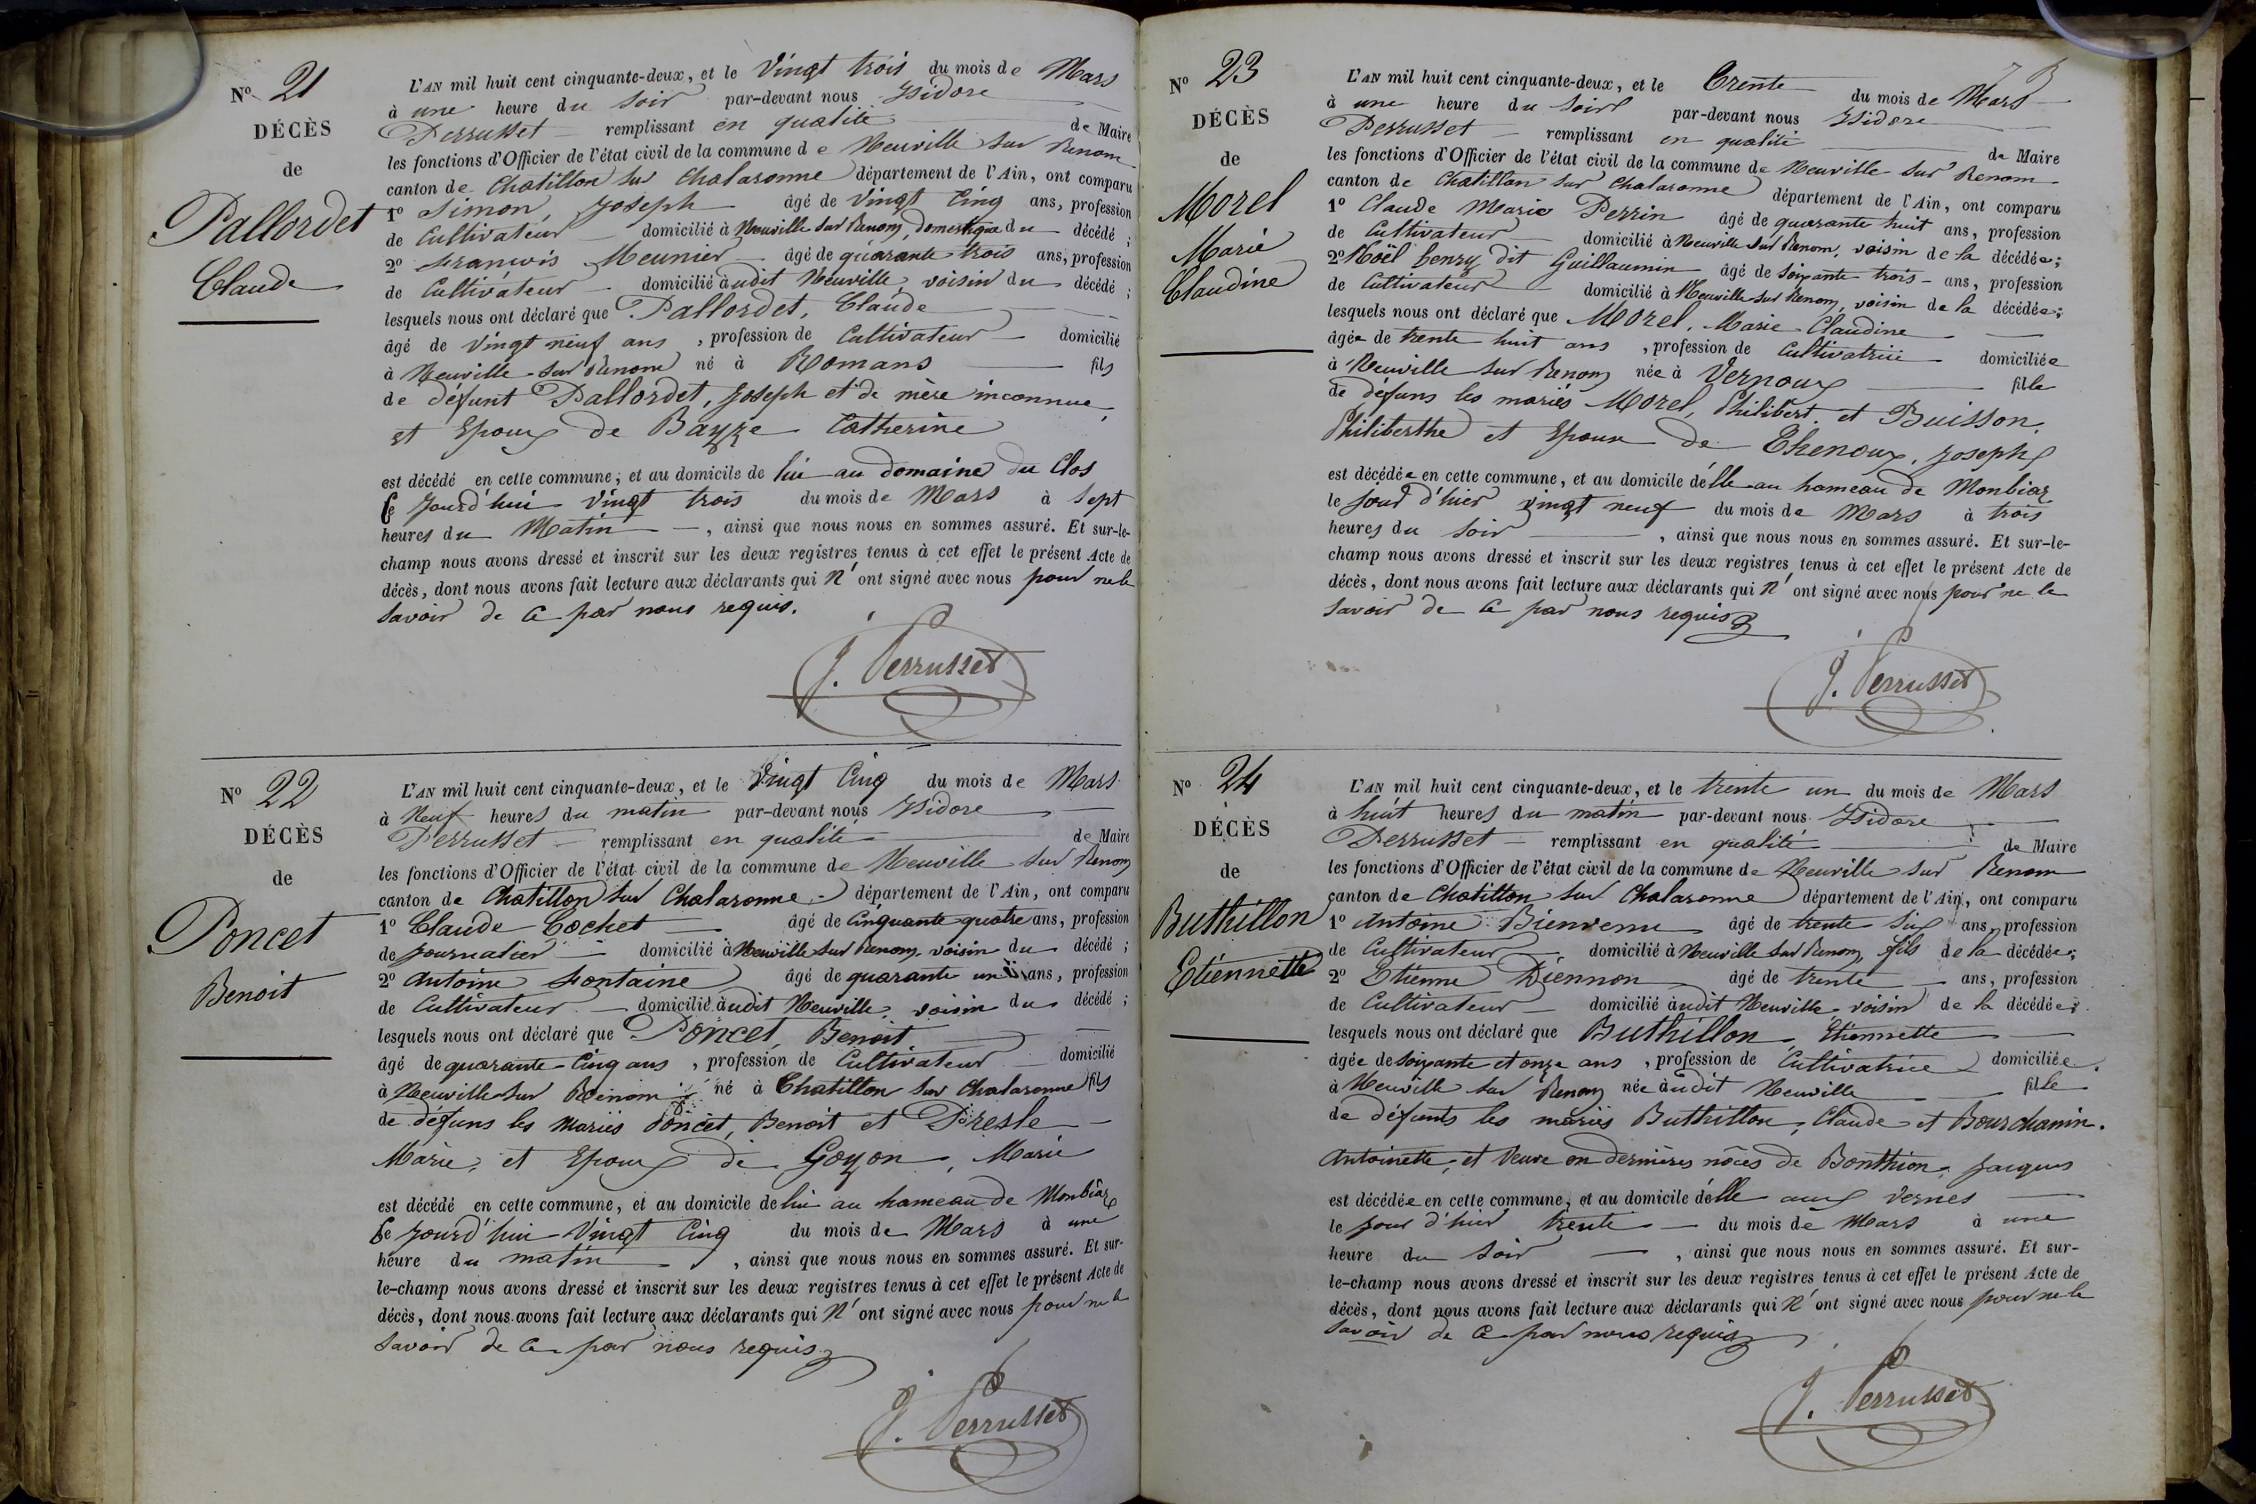 Nº 21
DÉCÈS
de
Pallordet
Claude
L'AN mil huit cent cinquante-deux, et le Vingt trois du mois de Mars
à une heure du soir par-devant nous Isidore
Perrusset remplissant en qualité de Maire
les fonctions d'Officier de l'état civil de la commune de Neuville sur Renom
canton de Chatillon sur Chalaronne département de l'Ain, ont comparu
1º Simon, Joseph âgé de Vingt Cinq ans, profession
de Cultivateur domicilié à Neuville sur Renom, domestique du décédé ;
2º François Meunier âgé de quarante trois ans, profession
de Cultivateur domicilié audit Neuville voisin du décédé ;
lesquels nous ont déclaré que Pallordet, Claude
âgé de Vingt neuf ans , profession de Cultivateur domicilié
à Neuville sur Renom né à Romans fils
de défunt Pallordet, Joseph et de mère inconnue,
et Epoux de Bayze Catherine
est décédé en cette commune, et au domicile de lui au domaine du Clos
Ce jourd'hui Vingt trois du mois de Mars à Sept
heures du Matin , ainsi que nous nous en sommes assuré. Et sur-le-
champ nous avons dressé et inscrit sur les deux registres tenus à cet effet le présent Acte de
décès, dont nous avons fait lecture aux déclarants qui n'ont signé avec nous pour ne le
savoir de ce par nous requis.
J. Perrusset
Nº 22
DÉCÈS
de
Poncet
Benoit
L'AN mil huit cent cinquante-deux, et le Vingt Cinq du mois de Mars
à Neuf heures du matin par-devant nous Isidore
Perrusset remplissant en qualité de Maire
les fonctions d'Officier de l'état civil de la commune de Neuville sur Renom
canton de Chatillon sur Chalaronne département de l'Ain, ont comparu
1º Claude Cochet âgé de Cinquante quatre ans, profession
de journalier domicilié à Neuville sur Renom, voisin du décédé ;
2º Antoine Fontaine âgé de quarante un ans, profession
de Cultivateur domicilié audit Neuville, voisin du décédé ;
lesquels nous ont déclaré que Poncet, Benoit
âgé de quarante Cinq ans , profession de Cultivateur domicilié
à Neuville sur Renom né à Chatillon sur Chalaronne fils
de défuns les Mariés Poncet, Benoit et Presle
Marie, et Epoux de Goyon, Marie
est décédé en cette commune, et au domicile de lui au hameau de Monbiaz
Ce jourd'hui Vingt Cinq du mois de Mars à une
heure du matin , ainsi que nous nous en sommes assuré. Et sur-
le-champ nous avons dressé et inscrit sur les deux registres tenus à cet effet le présent Acte de
décès, dont nous avons fait lecture aux déclarants qui n'ont signé avec nous pour ne le
savoir de ce par nous requis
J. Perrusset
Nº 23
DÉCÈS
de
Morel
Marie
Claudine
L'AN mil huit cent cinquante-deux, et le Trente du mois de Mars
à une heure du soir par-devant nous Isidore
Perrusset remplissant en qualité de Maire
les fonctions d'Officier de l'état civil de la commune de Neuville sur Renom
canton de Chatillon sur Chalaronne département de l'Ain, ont comparu
1º Claude Marie Perrin âgé de quarante huit ans, profession
de Cultivateur domicilié à Neuville sur Renom, voisin de la décédée ;
2º Noël Benzy dit Guillaumin âgé de soixante trois ans, profession
de Cultivateur domicilié à Neuville sur Renom, voisin de la décédée ;
lesquels nous ont déclaré que Morel, Marie Claudine
âgée de trente huit ans , profession de Cultivatrice domiciliée
à Neuville sur Renom née à Vernoux fille
de défuns les mariés Morel, Philibert et Buisson,
Philiberthe et Epouse de Thenoux, Joseph
est décédée en cette commune, et au domicile d'elle au hameau de Monbiaz
le jour d'hier vingt neuf du mois de Mars à trois
heures du soir , ainsi que nous nous en sommes assuré. Et sur-le-
champ nous avons dressé et inscrit sur les deux registres tenus à cet effet le présent Acte de
décès, dont nous avons fait lecture aux déclarants qui n'ont signé avec nous pour ne le
savoir de ce par nous requis
J. Perrusset
Nº 24
DÉCÈS
de
Buthillon
Etiennette
L'AN mil huit cent cinquante-deux, et le trente un du mois de Mars
à huit heures du matin par-devant nous Isidore
Perrusset remplissant en qualité de Maire
les fonctions d'Officier de l'état civil de la commune de Neuville sur Renom
canton de Chatillon sur Chalaronne département de l'Ain, ont comparu
1º Antoine Bienvenu âgé de trente six ans, profession
de Cultivateur domicilié à Neuville sur Renom, fils de la décédée ;
2º Etienne Diennon âgé de trente ans, profession
de Cultivateur domicilié audit Neuville voisin de la décédée ;
lesquels nous ont déclaré que Buthillon, Etiennette
âgée de soixante et onze ans , profession de Cultivatrice domiciliée
à Neuville sur Renom née audit Neuville fille
de défunts les mariés Buthillon, Claude et Bourchanin,
Antoinette, et Veuve en dernières nôces de Bonthion, Jacques
est décédée en cette commune, et au domicile d'elle aux Vernes
le jour d'hier trente du mois de Mars à une
heure du soir , ainsi que nous nous en sommes assuré. Et sur-
le-champ nous avons dressé et inscrit sur les deux registres tenus à cet effet le présent Acte de
décès, dont nous avons fait lecture aux déclarants qui n'ont signé avec nous pour ne le
savoir de ce par nous requis
J. Perrusset